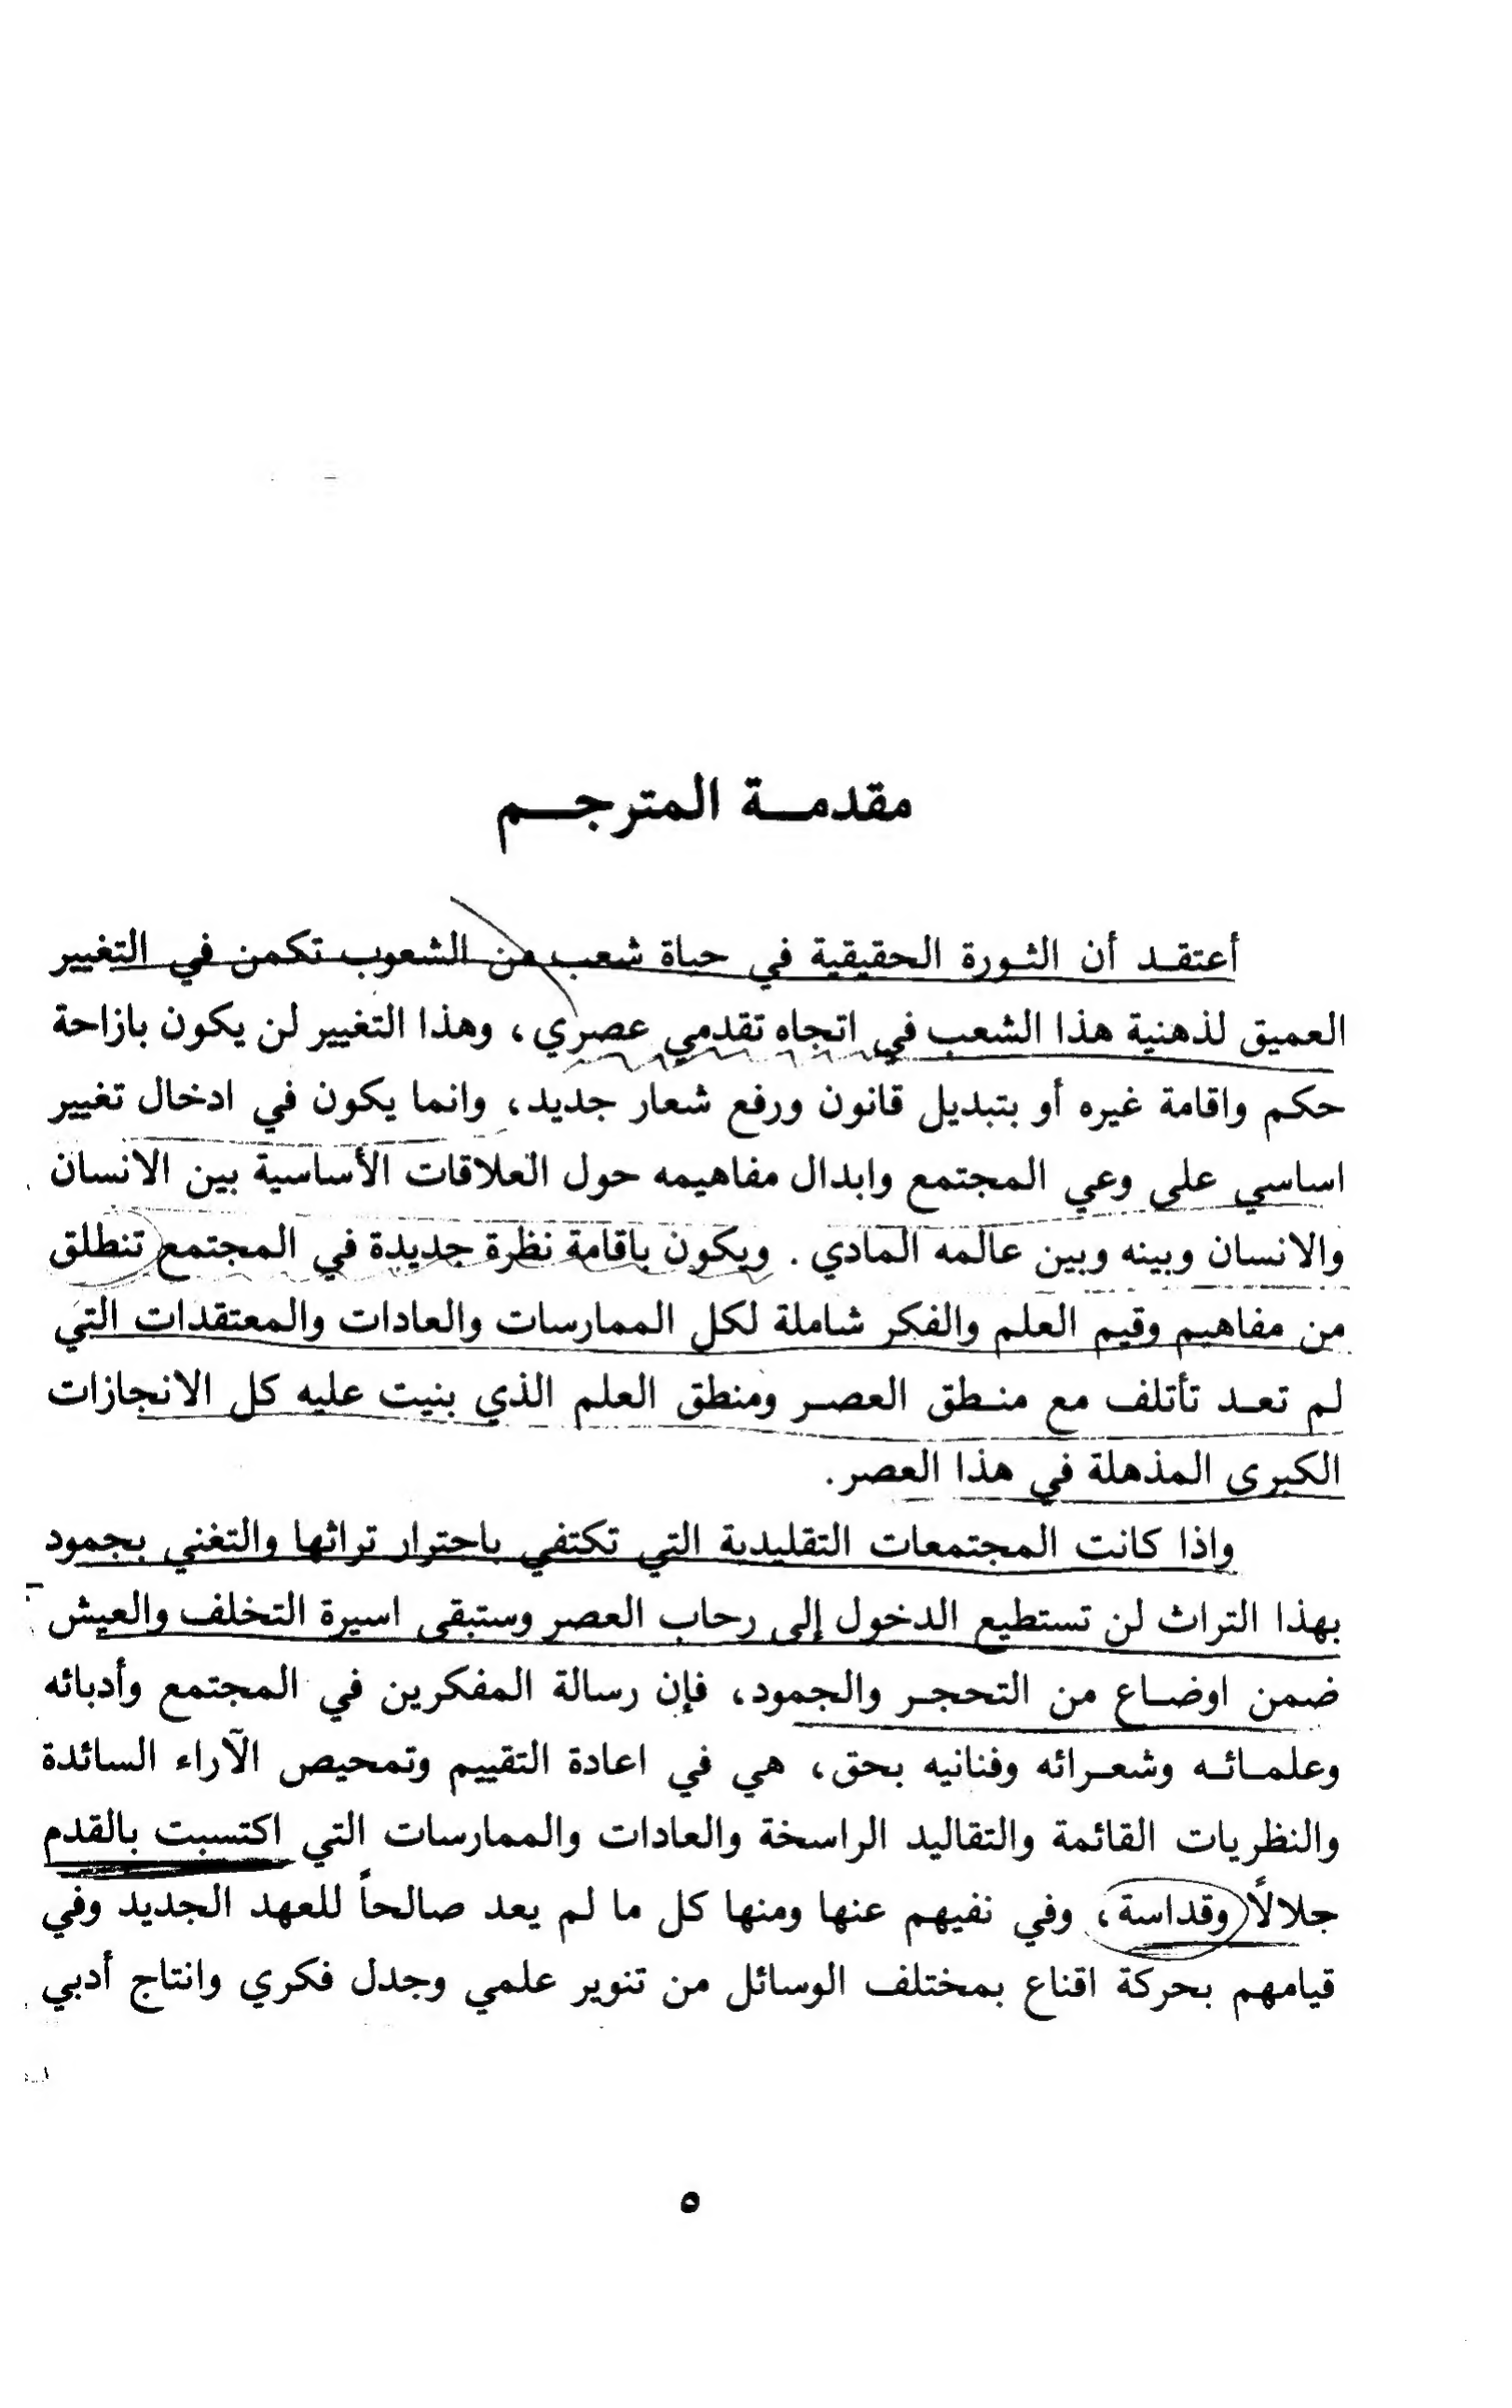 مقدمة المترجم
أعتقد أن الثورة الحقيقية في حياة شعب من الشعوب تكمن في التغيير
العميق لذهنية هذا الشعب في اتجاه تقدمي عصري، وهذا التغيير لن يكون بازاحة
حكم واقامة غيره أو بتبديل قانون ورفع شعار جديد، وانما يكون في ادخال تغيير
اساسي على وعي المجتمع وابدال مفاهيمه حول العلاقات الأساسية بين الانسان
والانسان وبينه وبين عالمه المادي. ويكون باقامة نظرة جديدة في المجتمع تنطلق
من مفاهيم وقيم العلم والفكر شاملة لكل الممارسات والعادات والمعتقدات التي
لم تعد تأتلف مع منطق العصر ومنطق العلم الذي بنيت عليه كل الانجازات
الكبرى المذهلة في هذا العصر.
واذا كانت المجتمعات التقليدية التي تكتفي باجترار تراثها والتغني بجمود
بهذا التراث لن تستطيع الدخول إلى رحاب العصر وستبقى اسيرة التخلف والعيش
ضمن اوضاع من التحجر والجمود، فإن رسالة المفكرين في المجتمع وأدبائه
وعلمائه وشعرائه وفنانيه بحق، هي في اعادة التقييم وتمحيص الآراء السائدة
والنظريات القائمة والتقاليد الراسخة والعادات والممارسات التي اكتسبت بالقدم
جلالاً وقداسة، وفي نفيهم عنها ومنها كل ما لم يعد صالحاً للعهد الجديد وفي
قيامهم بحركة اقناع بمختلف الوسائل من تنوير علمي وجدل فكري وانتاج أدبي
٥